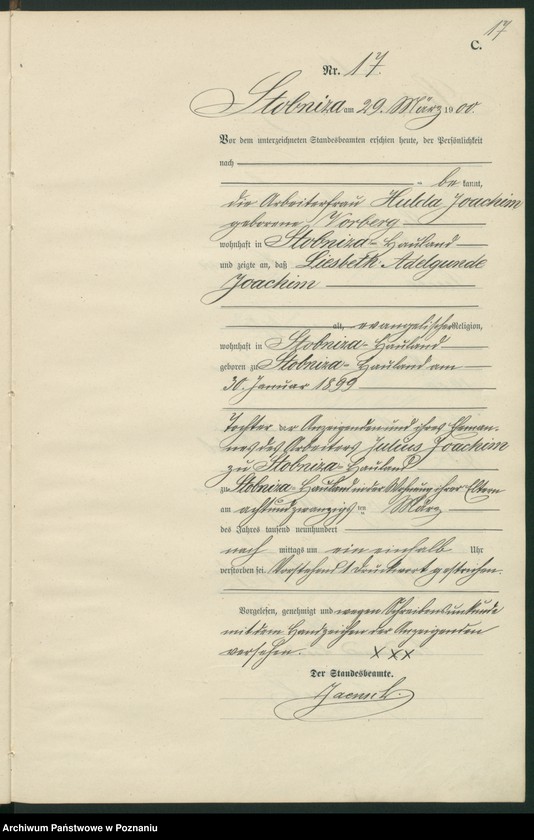 17
C.
Nr. 17.
Stobniza am 29. März 1900.
Vor dem unterzeichneten Standesbeamten erschien heute, der Persönlichkeit
nach
be kannt,
die Arbeiterfrau Hulda Joachim
geborene Vorberg
wohnhaft in Stobniza-Hauland
und zeigte an, daß Liesbeth Adelgunde
Joachim
alt, evangelischer Religion,
wohnhaft in Stobniza-Hauland
geboren zu Stobniza-Hauland am
30. Januar 1899
Tochter der Anzeigenden und ihres Eheman-
nes des Arbeiters Julius Joachim
zu Stobniza-Hauland
zu Stobniza-Hauland in der Wohnung ihrer Eltern
am achtundzwanzigsten März
des Jahres tausend neunhundert
nach mittags um ein einhalb Uhr
verstorben sei. Vorstehend 1 Druckwort gestrichen.
Vorgelesen, genehmigt und wegen Schreibensunkunde
mit dem Handzeichen der Anzeigenden
versehen. XXX
Der Standesbeamte.
Archiwum Państwowe w Poznaniu